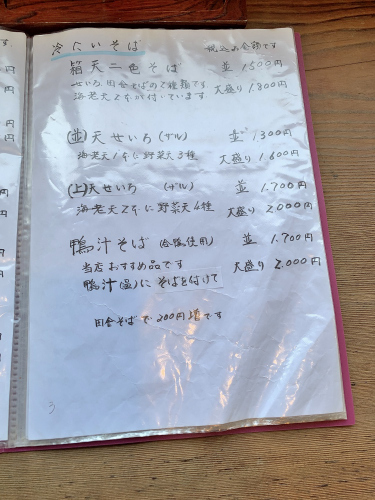 冷たいそば 税込み金額です
箱天二色そば 並 1500円
せいろ、田舎そばの2種類です
海老天2本が付いています。 大盛り 1,800円
(並)天せいろ (ザル) 並 1300円
海老天1本に野菜天3種 大盛り 1,600円
(上)天せいろ (ザル) 並 1,700円
海老天2本に野菜天4種 大盛り 2,000円
鴨汁そば (合鴨使用) 並 1,700円
当店おすすめ品です 大盛り 2,000円
鴨汁(温)に そばを付けて
田舎そばで200円増です
3